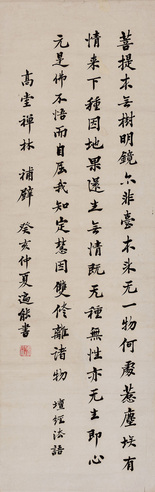 菩提本无樹明鏡亦非臺本来无一物何處惹塵埃有
情来下種因地果還生无情既无種無性亦无生即心
元是佛不悟而自屈我知定慧因雙修離諸物 壇經法語
高堂禪林 補壁 癸亥仲夏遍能書